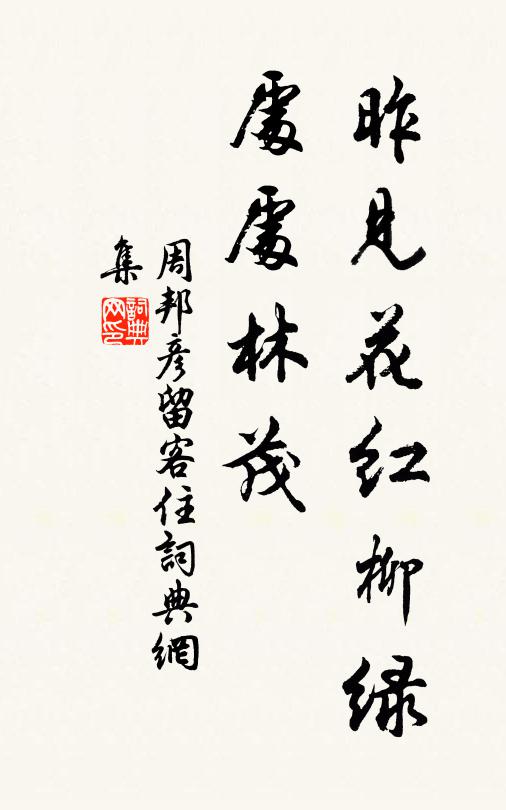 昨見花紅柳緑
處處林茂
周邦彦留客住詞典網
集
詞典網印